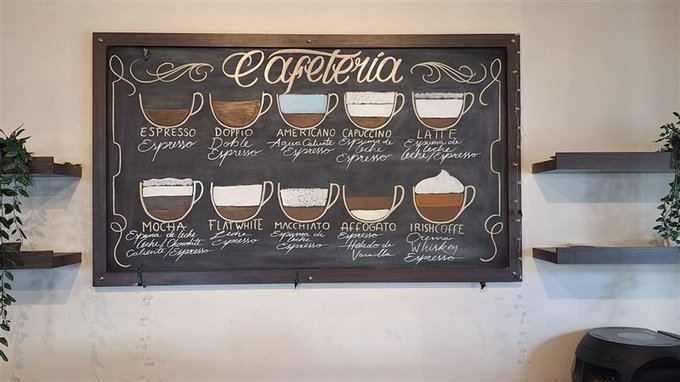 Cafetería
ESPRESSO
Espresso
DOPPIO
Doble
Espresso
AMERICANO
Agua Caliente
Espresso
CAPUCCINO
Espuma de
leche
Espresso
LATTE
Espuma de
leche
leche/Espresso
MOCHA
Espuma de leche
leche/Chocolate
Caliente/Espresso
FLAT WHITE
Leche
Espresso
MACCHIATO
Espuma de
leche
Espresso
AFFOGATO
Espresso
Helado de
Vainilla
IRISHCOFFE
Crema
Whiskey
Espresso